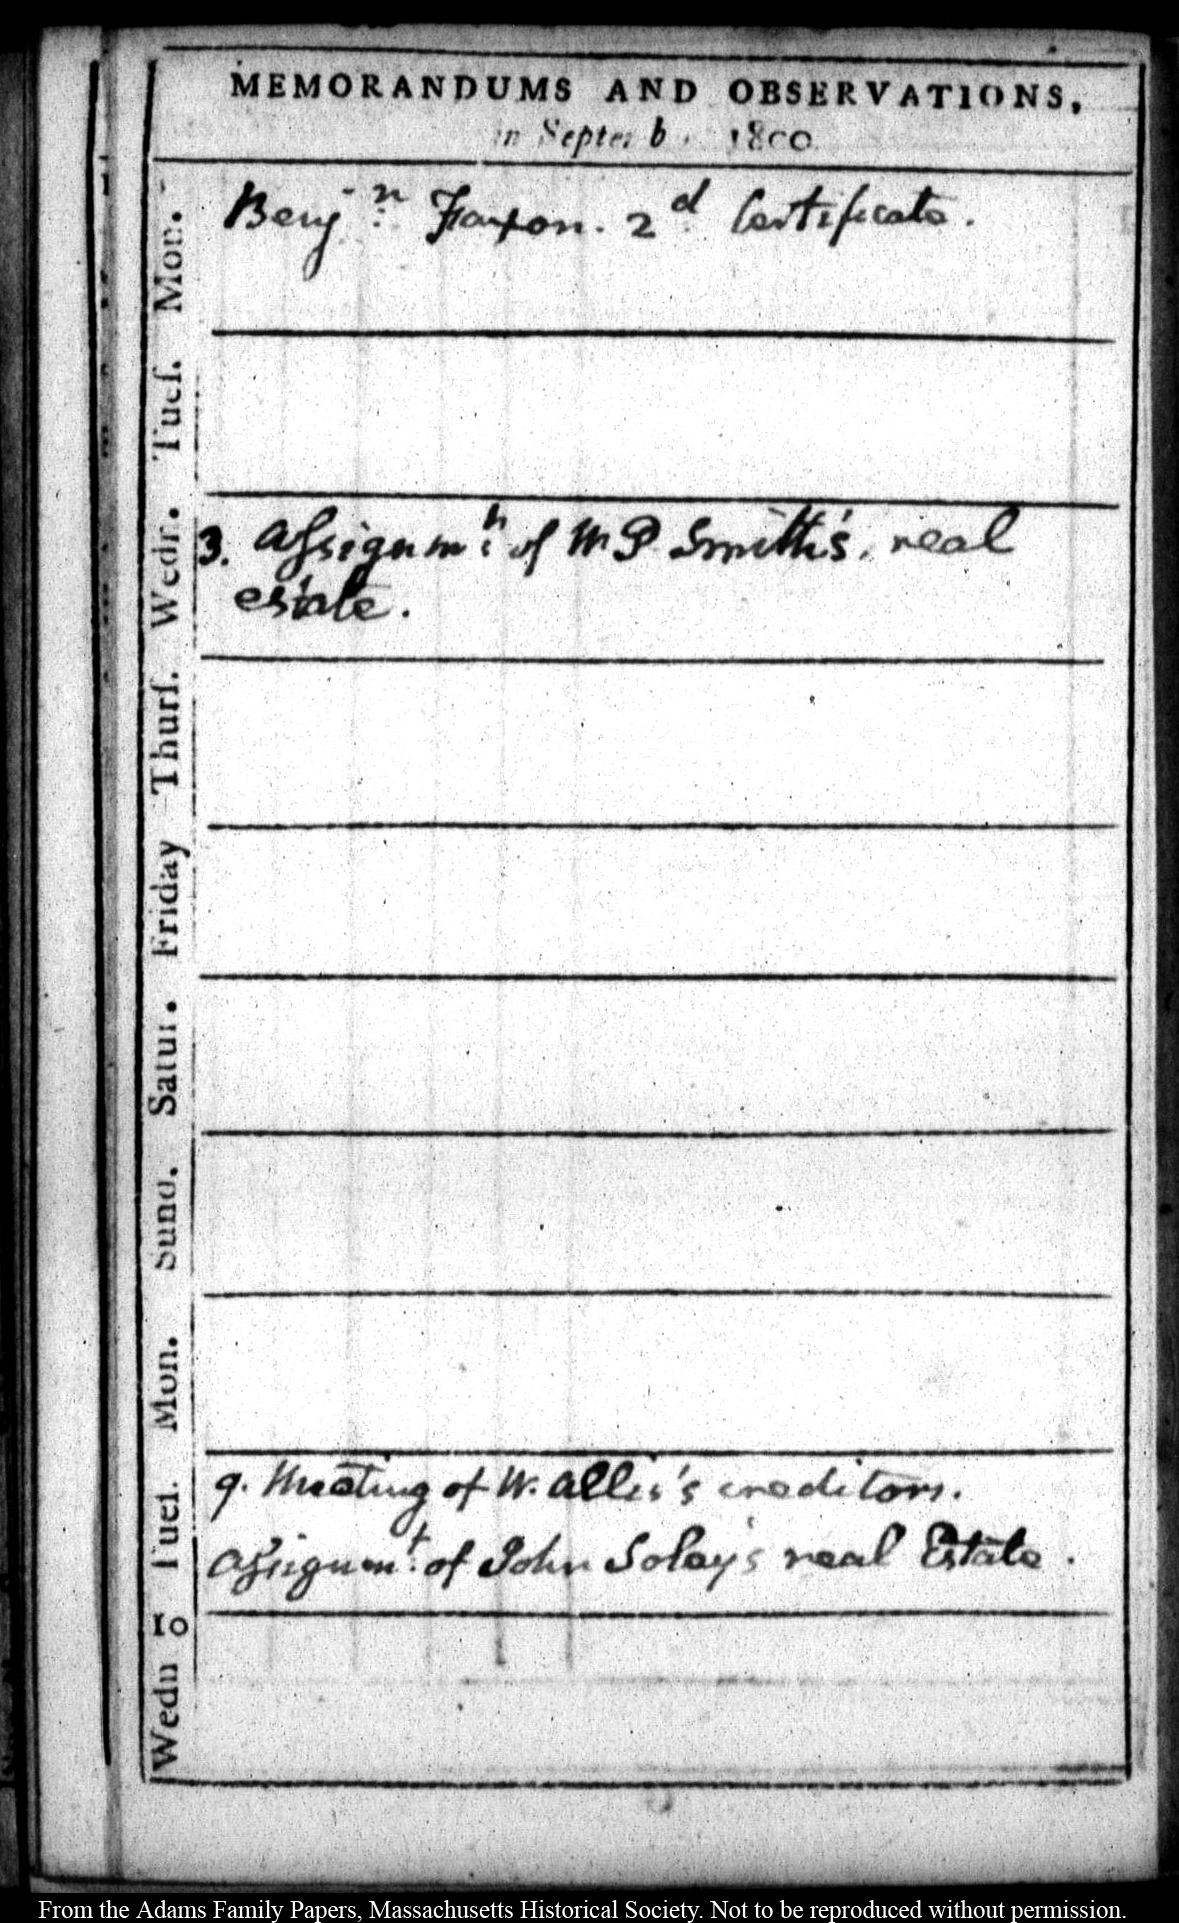 MEMORANDUMS AND OBSERVATIONS,
in Septemb. 1800
Mon. Benjn. Faxon. 2d. Certificate.
Tueſ.
Wedn. 3. Aſsignmt. of W P Smith's. real
estate.
Thurſ.
Friday
Satur.
Sund.
Mon.
Tueſ. 9. Meeting of W. Allis's creditors.
Aſsignmt. of John Soley's real Estate.
Wedn 10
From the Adams Family Papers, Massachusetts Historical Society. Not to be reproduced without permission.